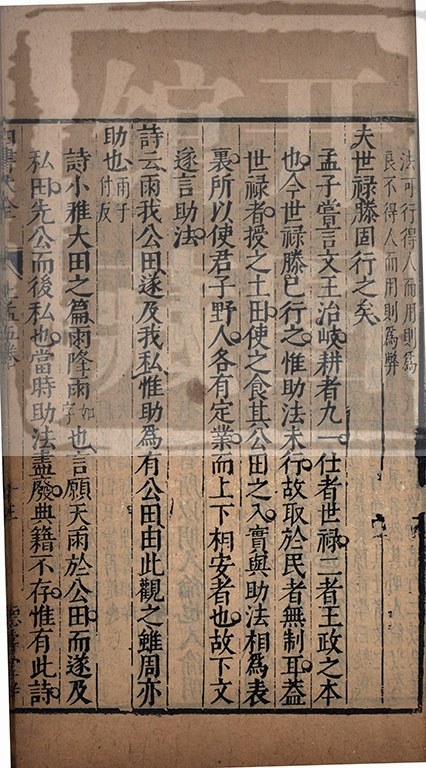 法可行得人而用則為
良不得人而用則為弊
夫世祿滕固行之矣
孟子嘗言文王治岐耕者九一仕者世祿二者王政之本
也今世祿滕已行之惟助法未行故取於民者無制耳蓋
世祿者授之土田使之食其公田之入實與助法相為表
裏所以使君子野人各有定業而上下相安者也故下文
遂言助法
詩云雨我公田遂及我私惟助為有公田由此觀之雖周亦
助也雨于付反
詩小雅大田之篇雨降雨如字也言願天雨於公田而遂及
私田先公而後私也當時助法盡廢典籍不存惟有此詩